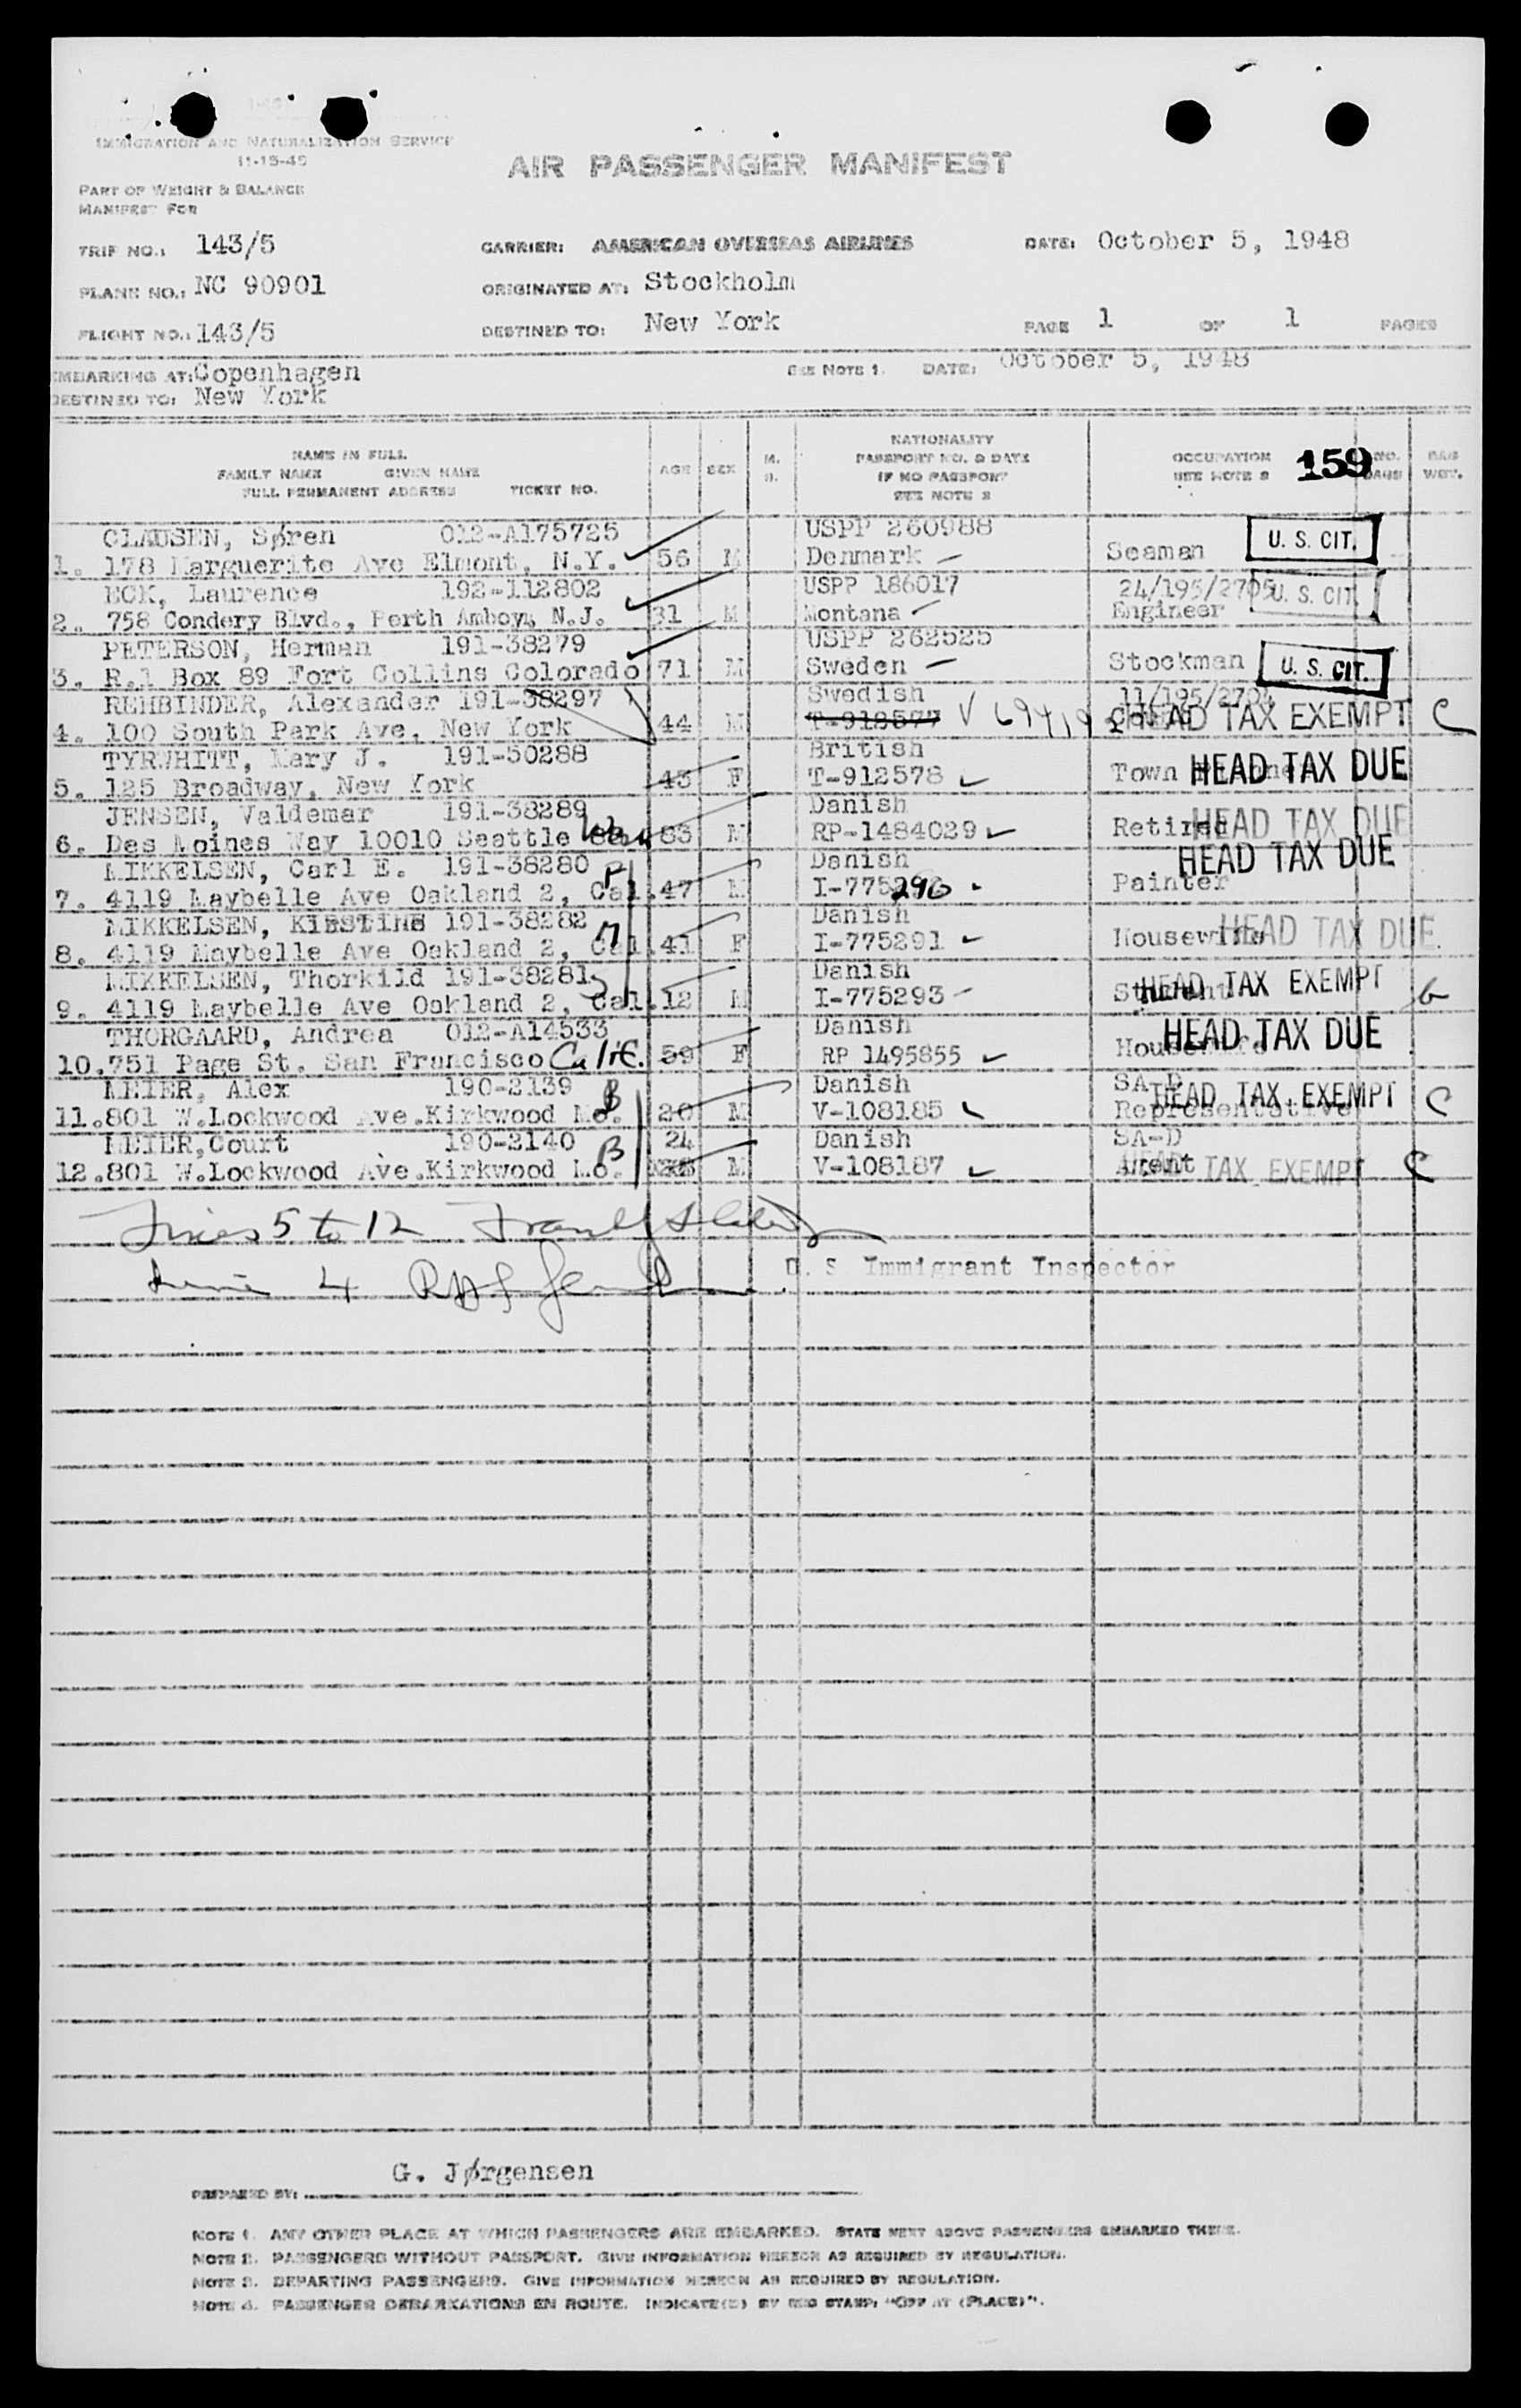 IMMIGRATION AND NATURALIZATION SERVICE
11-15-45
AIR PASSENGER MANIFEST
PART OF WEIGHT & BALANCE
MANIFEST FOR
TRIP NO.: 143/5 CARRIER: AMERICAN OVERSEAS AIRLINES DATE: October 5, 1948
PLANE NO.: NC 90901 ORIGINATED AT: Stockholm
FLIGHT NO.: 143/5 DESTINED TO: New York PAGE 1 OF 1 PAGES
EMBARKING AT: Copenhagen SEE NOTE 1. DATE: October 5, 1948
DESTINED TO: New York
NAME IN FULL
FAMILY NAME GIVEN NAME
FULL PERMANENT ADDRESS TICKET NO. AGE SEX M. NATIONALITY PASSPORT NO. & DATE IF NO PASSPORT SEE NOTE 2 OCCUPATION SEE NOTE 2 159 NO. BAGS BAG WGT.
CLAUSEN, Søren 012-A175725 USPP 260988
1. 178 Marguerite Ave Elmont, N.Y. 56 M Denmark Seaman U. S. CIT.
ECK, Laurence 192-112802 USPP 186017 24/195/2705 U. S. CIT.
2. 758 Condery Blvd., Perth Amboy, N.J. 31 M Montana Engineer
PETERSON, Herman 191-38279 USPP 262525
3. R.1 Box 89 Fort Collins Colorado 71 M Sweden Stockman U. S. CIT.
REHBINDER, Alexander 191-38297 Swedish 11/195/2704
4. 100 South Park Ave, New York 44 M T-912577 V HEAD TAX EXEMPT C
TYRWHITT, Mary J. 191-50288 British
5. 125 Broadway, New York 43 F T-912578 Town HEAD TAX DUE
JENSEN, Valdemar 191-38289 Danish
6. Des Moines Way 10010 Seattle 83 M RP-1484029 Retired HEAD TAX DUE
MIKKELSEN, Carl E. 191-38280 Danish HEAD TAX DUE
7. 4119 Maybelle Ave Oakland 2, Cal. 47 M I-775290 Painter
MIKKELSEN, KIRSTINE 191-38282 Danish
8. 4119 Maybelle Ave Oakland 2, Cal. 41 F I-775291 Housewife HEAD TAX DUE.
MIKKELSEN, Thorkild 191-38281 Danish
9. 4119 Maybelle Ave Oakland 2, Cal. 12 M I-775293 Student HEAD TAX EXEMPT b
THORGAARD, Andrea 012-A14533 Danish
10. 751 Page St. San Francisco Calif. 59 F RP 1495855 Housewife HEAD TAX DUE
MEIER, Alex 190-2139 B Danish SA-D
11. 801 W.Lockwood Ave.Kirkwood Mo. 20 M V-108185 Representative HEAD TAX EXEMPT C
MEIER,Court 190-2140 B 24 Danish SA-D
12. 801 W.Lockwood Ave.Kirkwood Mo. M V-108187 Agent HEAD TAX EXEMPT C
Lines 5 to 12
U. S Immigrant Inspector
Line 4
G. Jørgensen
PREPARED BY:
NOTE 1. ANY OTHER PLACE AT WHICH PASSENGERS ARE EMBARKED. STATE NEXT ABOVE PASSENGERS EMBARKED THERE.
NOTE 2. PASSENGERS WITHOUT PASSPORT. GIVE INFORMATION HEREON AS REQUIRED BY REGULATION.
NOTE 3. DEPARTING PASSENGERS. GIVE INFORMATION HEREON AS REQUIRED BY REGULATION.
NOTE 4. PASSENGER DEBARKATIONS EN ROUTE. INDICATE(D) BY RED STAMP: "OFF AT (PLACE)".